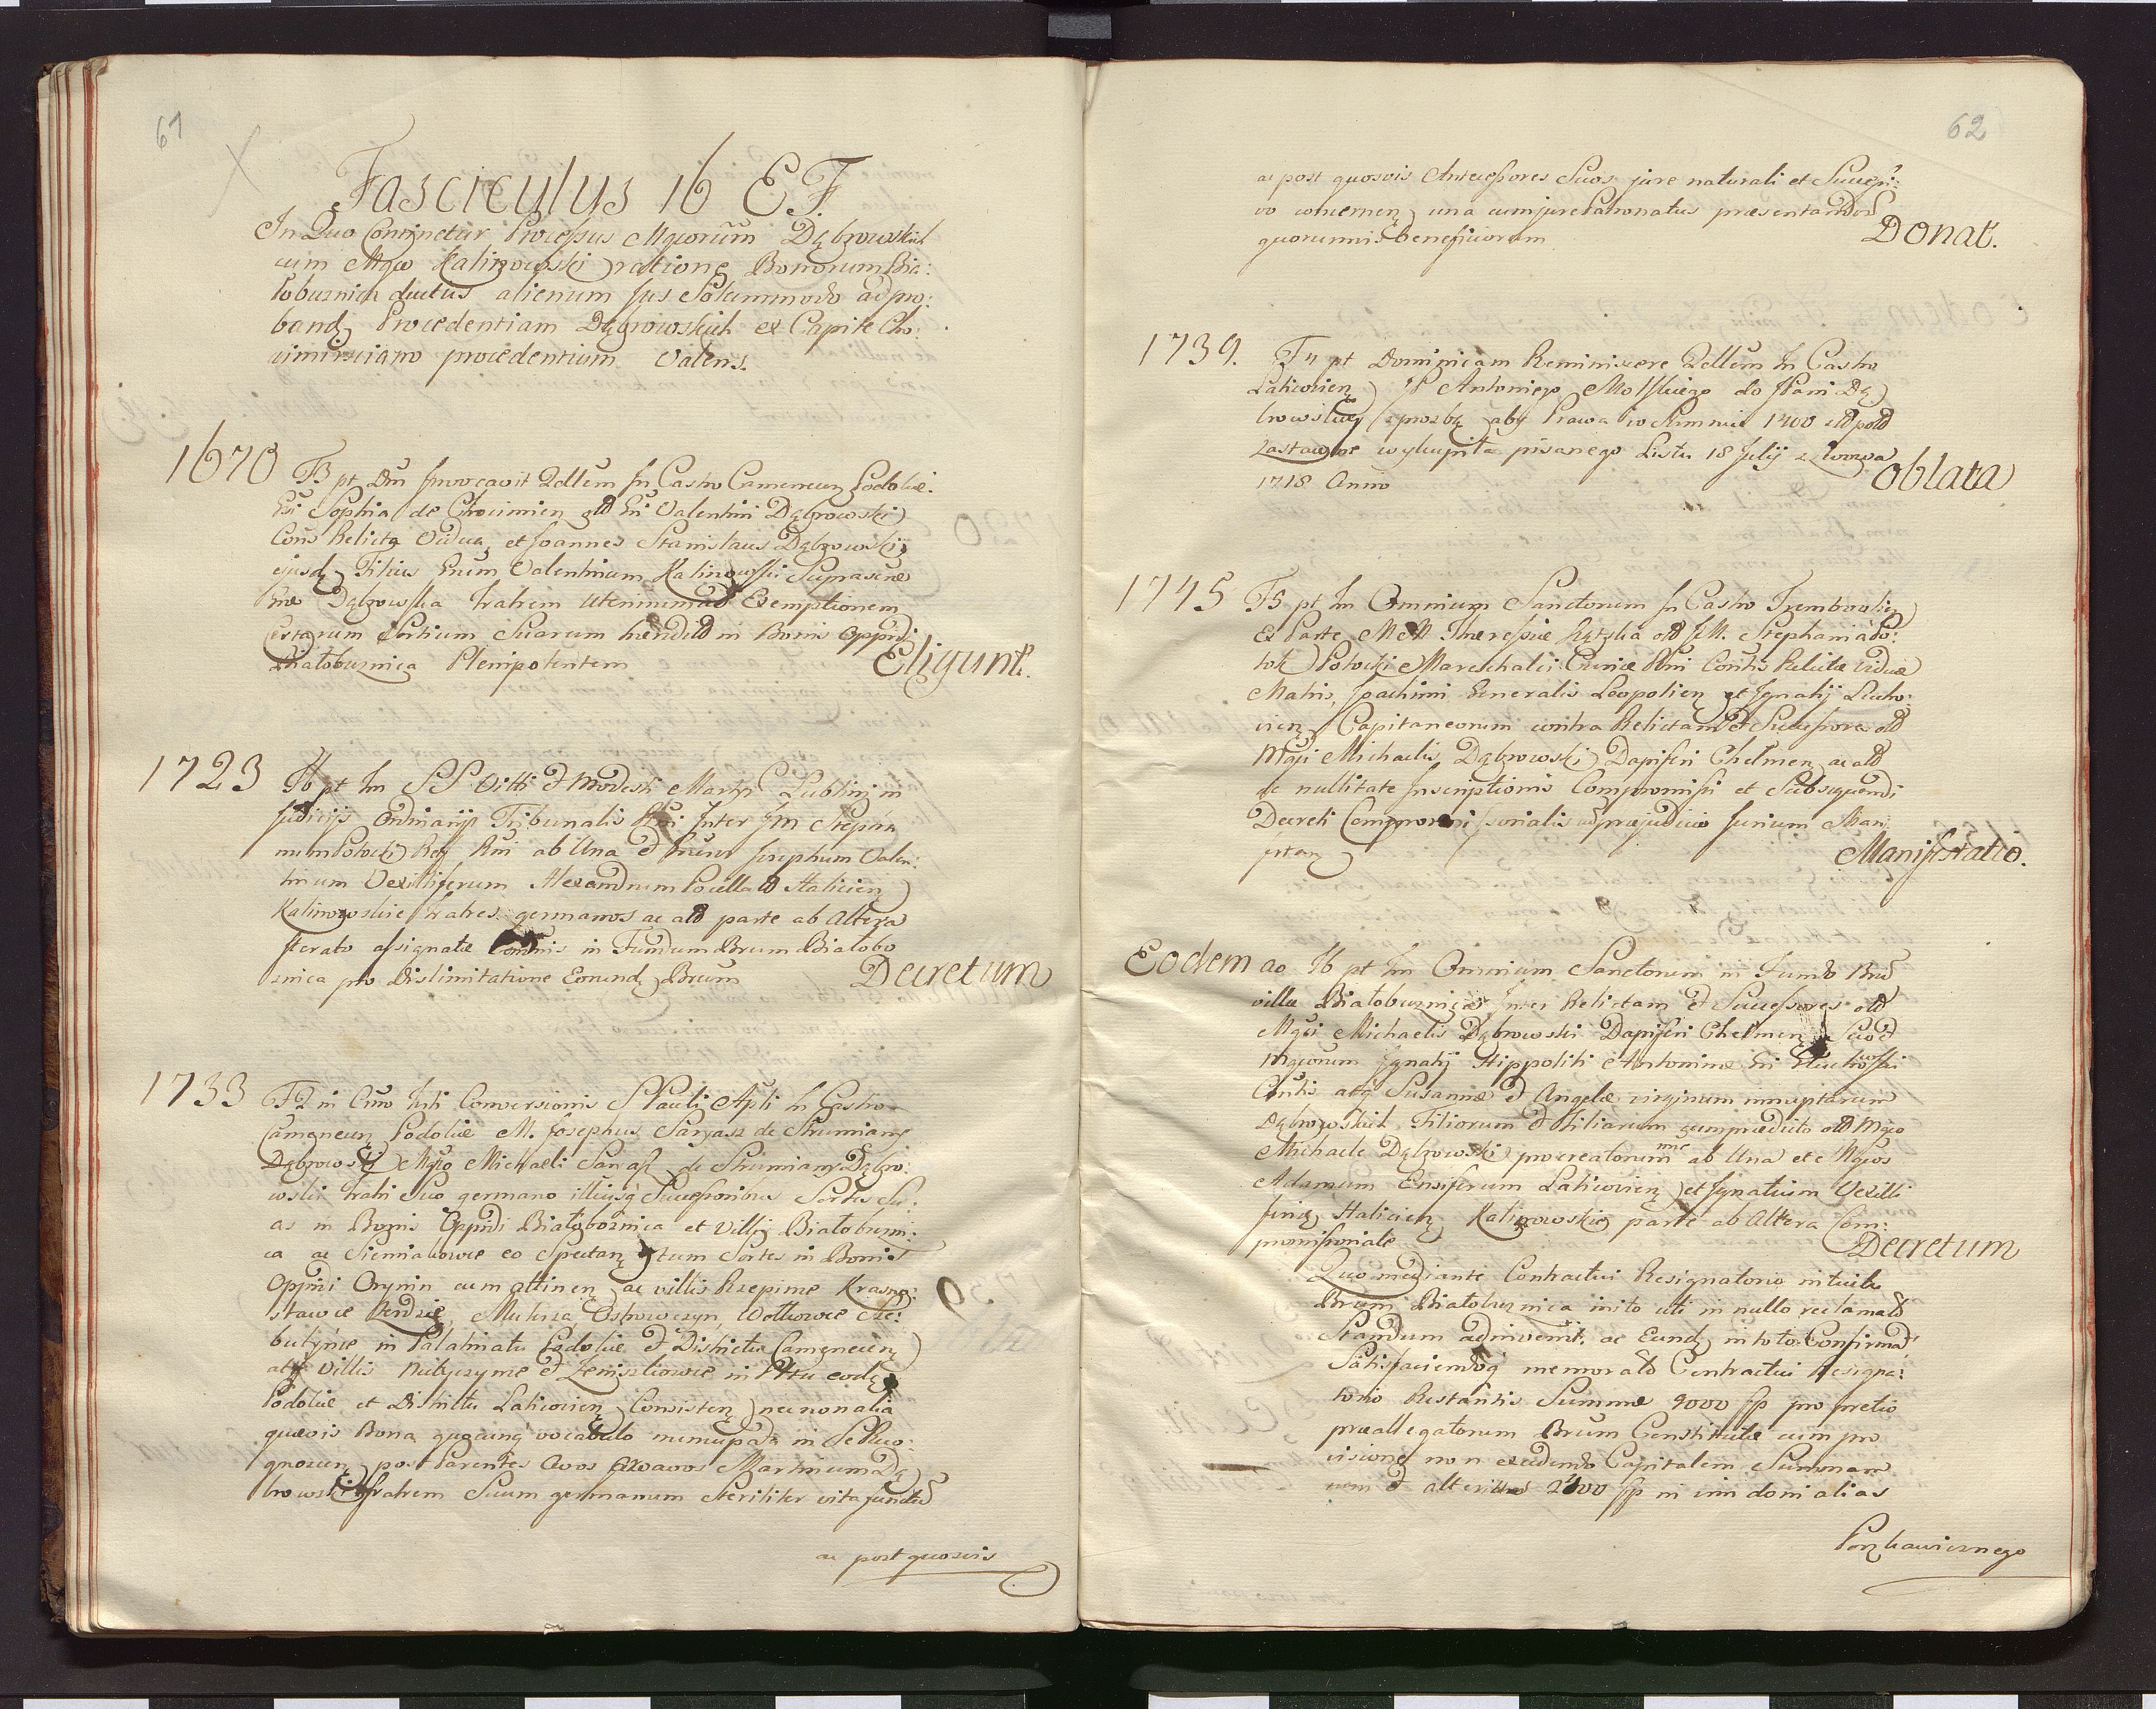 61
Fasciculus 16 E F.
In Quo Continetur Processus Mgcorum Dąbrowskich
cum Mgco Kalinowski ratione Bonorum Bia:
łobuznica ductus alienum Jus Solummodo ad pro:
bandę Procedentiam Dąbrowskich ex Capite Cho:
cimirsciano procedentium Valens.
1670 F3 pt Dm Invocavit Qdllem In Castro Camenecen Podoliæ.
Gsi Sophia de Chocimien old Gsi Valentini Dąbrowski
Cons Relicta Vidua, et Joannes Stanislaus Dąbrowski
ejusdę Filius Gnum Valentinum Kalinowski Supra scriæ
Gnæ Dąbrowska fratrem Uterinum ad Exemptionem
certarum Sortium Suarum hændit in Bonis Oppidi
Białobuznica Plenipotentem Eligunt.
1723 F6 pt fm SS Vitti et Modesti Martyr Lublini in
Judicijs Ordinarijs Tribunalis Rni Inter Jm Stepha
num Potocki Ref Rni ab Una et Gnros Josephum Valen:
tinum Vexilliferum Alexandrum Pocillato Halicien
Kalinowskie fratres germanos ac ald parte ab Altera
fferato assignatæ Comnis in Fundum Brum Białobo
znica pro Dislimitatione Eorundę Brum Decretum
1733 F2 in Crno festi Conversionis S Pauli Apli In Castro
Camenecen Podoliæ M. Josephus Saryasz de Strumiany
Dąbrowski Mgco Michaeli Saryasz de Strumiany Dąbro:
wski fratri Suo germano illiusq Successoribus Sortes Su:
as in Bonis Oppidi Białobożnica et Villis Białobuzni:
ca ac Siemiakowce eo Spectan ytum Sortes in Bonis
Oppidi Orynin cum attinen ac villis Rzepince Krasno:
stawce Kendzie, Muksza, Ostrowczyn, Wolkowce Cze:
butynce in Palatinatu Podoliæ et Districtu Camenecien
atq Villis Nuhyrzyme et Zeniszkowce in Pttu eodę
Podoliæ et Districtu Laticovien Consisten necnon alia
quævis Bona quocunq vocabulo nuncupata in Se Quo:
gnorun post Parentes Avos Proavos Martinum Dą
browski fratrem Suum germanum Steriliter vita functū
ac post quosvis
62
ac post quosvis Antecessores Suos jure naturali et Successi:
vo concernen una cum jure Patronatus præsentandoru
quorumvis beneficiorum Donat.
1739. F4 pt Dominicam Reminiscere Qdllem In Castro
Laticovien JP Antoniego Molskiego do JPani Dą
browskiey z prozbą aby Prawa w Summie 1400 ald pold
Zastawne wykupiła pisanego Listu 18 Julij z Lwowa
1718 Anno Oblata
1745 F5 pt fm Omnium Sanctorum In Castro Trembowlien
Ex Parte M M Theressiæ Kątska old JM. Stephani a Po:
tok Potocki Mareschalci Curiæ Rni Conthis Relictæ Viduæ
Matris, Joachimi Generalis Leopolien et Ignatij Luctro:
vien Capitaneorum contra Relictam et Successores old
Mgci Michaelis Dąbrowski Dapiferi Chelmen ac ald
de nullitate Inscriptionis Compromissi et Subsequendi
Decreti Compromissorialis ad præjudicio Jurium Mani
festan Manifestatio.
Eodem ao F6 pt fm Omnium Sanctorum in Fundo Bnd
villæ Białobuznica Inter Relictam et Successores old
Mgci Michaelis Dąbrowski Dapiferi Chelmen Suod
Mgcorum Ignatij Hippoliti Antoninæ Gni Gluchowski
Conthis atq Susannæ et Angelæ virginum innuptarum
Dąbrowskich Filiorum et Filiarum cum prædicto old Mgco
Michaele Dąbrowski procreatorum nnc ab Una et Mgcos
Adamum Ensiferum Laticovien et Ignatium Vexilli
ferię Halicien Kalinowskie parte ab Altera Com:
promissoriale Decretum
Quo mediante Contractui Resignatorio intuitu
Brum Białobuznica inito uti in nullo reclamato
Standum adinvenit. ac Eundę in toto Confirmat
Satisfaciendoq memorato Contractui Resigna:
torio Restantis Summæ 9000 fp pro pretio
præallegatorum Brum Constitutæ cum pro
visione non excedendo Capitalem Summam
nem et alterius 2400 fp in vim doni alias
Porękawicznego